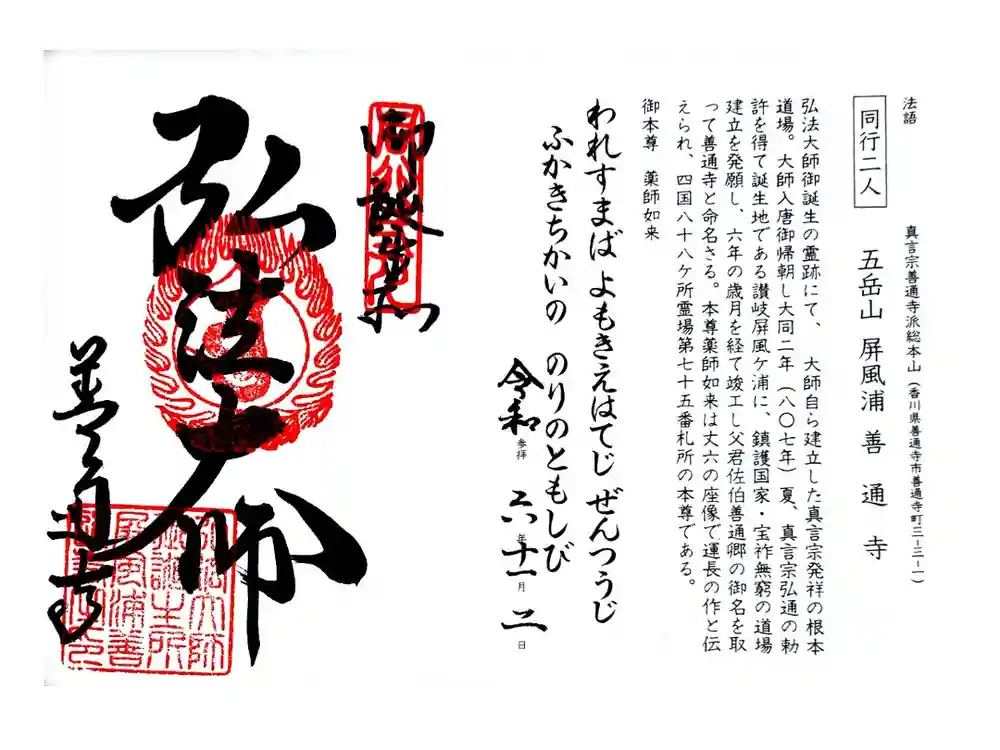 法語
真言宗善通寺派総本山（香川県善通寺市善通寺町三ー三ー一）
同行二人
五岳山 屏風浦 善通寺
弘法大師御誕生の霊跡にて、 大師自ら建立した真言宗発祥の根本
道場。大師入唐御帰朝し大同二年（八〇七年）夏、真言宗弘通の勅
許を得て誕生地である讃岐屏風ケ浦に、鎮護国家・宝祚無窮の道場
建立を発願し、六年の歳月を経て竣工し父君佐伯善通卿の御名を取
って善通寺と命名さる。本尊薬師如来は丈六の座像で運長の作と伝
えられ、四国八十八ケ所霊場第七十五番札所の本尊である。
御本尊 薬師如来
われすまば よもきえはてじ ぜんつうじ
ふかきちかいの のりのともしび
令和 六年 十一月 二日
参拝
弘法大師
善通寺